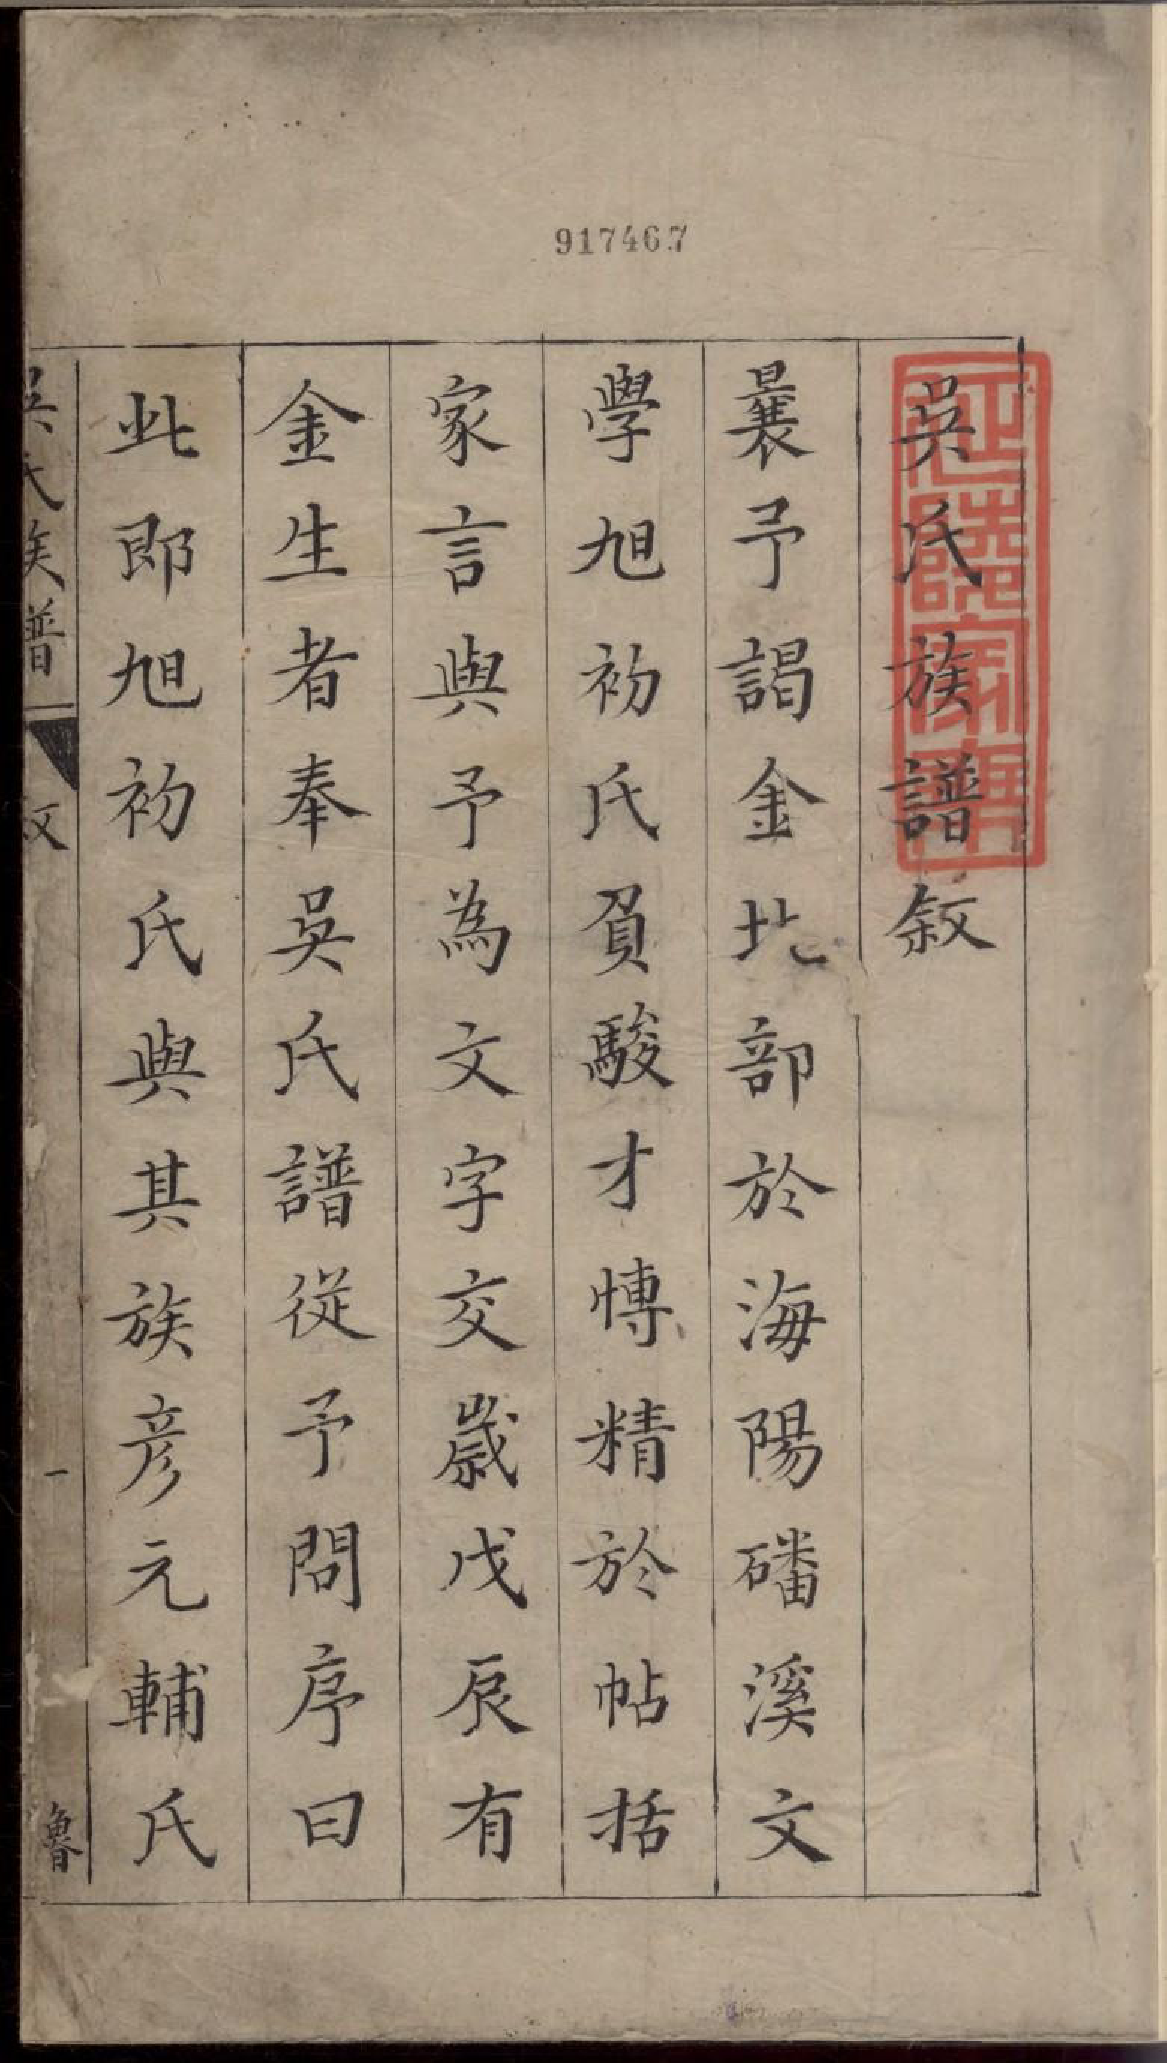 917467
吳氏族譜敘
曩予謁金北部於海陽磻溪文
學旭初氏負駿才慱精於帖括
家言與予為文字交歲戊辰有
金生者奉吳氏譜從予問序曰
此即旭初氏與其族彦元輔氏
吳氏族譜 敘 一 魯